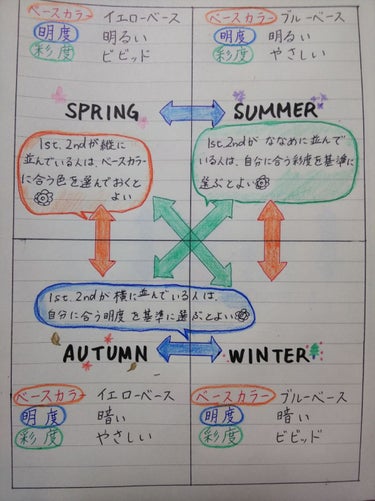 ベースカラー イエローベース
明度 明るい
彩度 ビビッド
ベースカラー ブルーベース
明度 明るい
彩度 やさしい
SPRING
SUMMER
1st. 2ndが縦に
並んでいる人は、ベースカラー
に合う色を選んでおくと
よい
1st. 2ndが ななめに並んで
いる人は、自分に合う彩度を基準に
選ぶとよい
1st. 2ndが 横に並んでいる人は、
自分に合う明度を基準に選ぶとよい
AUTUMN
WINTER
ベースカラー イエローベース
明度 暗い
彩度 やさしい
ベースカラー ブルーベース
明度 暗い
彩度 ビビッド